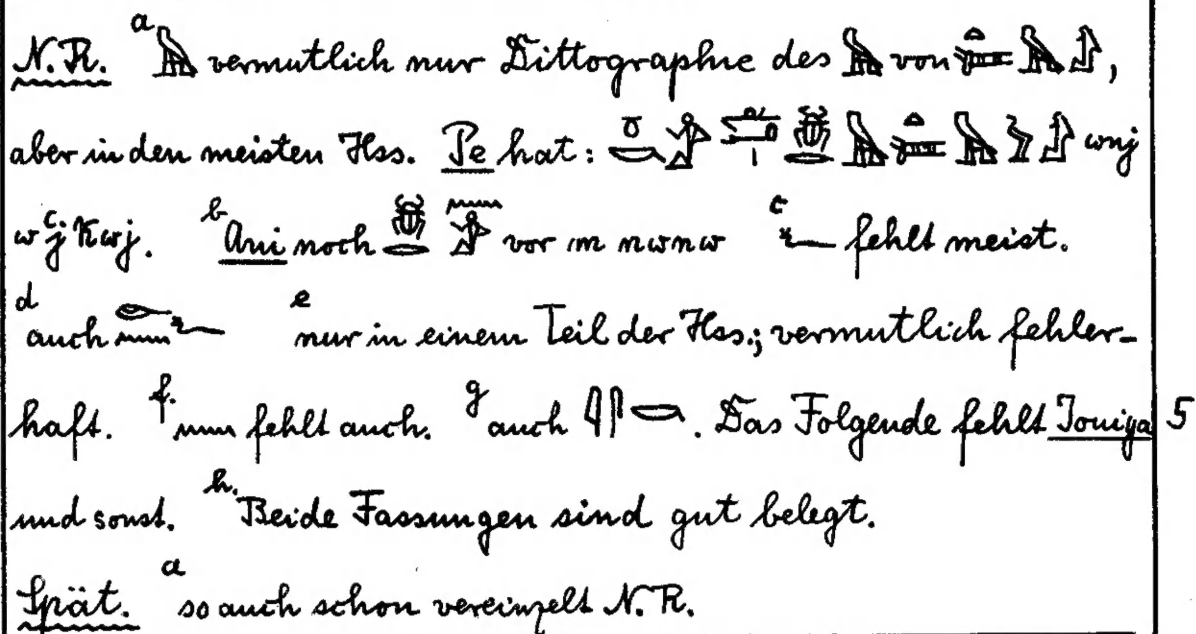 N.R. a vermutlich nur Dittographie des von ,
aber in den meisten Hss. Pe hat: wnj
wꜥj kwj. b Ani noch vor m nwnw c fehlt meist.
d auch e nur in einem Teil der Hss.; vermutlich fehler-
haft. f. fehlt auch. g auch . Das Folgende fehlt Iouiya 5
und sonst. h. Beide Fassungen sind gut belegt.
Spät. a so auch schon vereinzelt N.R.